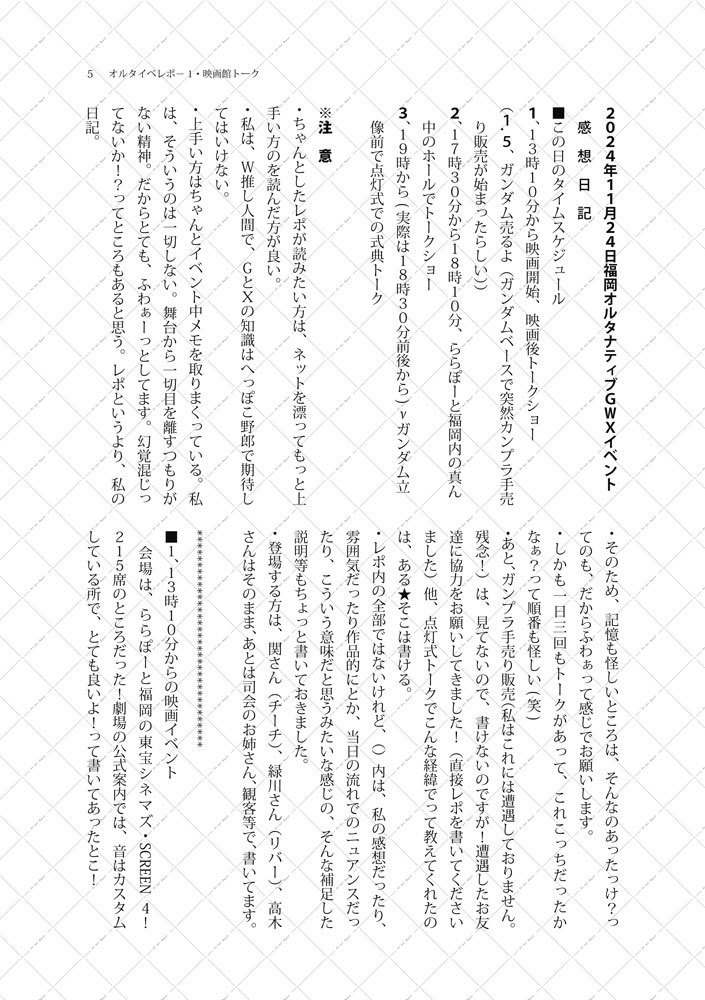 5 オルタイベレポー1・映画館トーク
2024年11月24日福岡オルタナティブGWXイベント
感想日記
■この日のタイムスケジュール
1、13時10分から映画開始、映画後トークショー
(1.5、ガンダム売るよ(ガンダムベースで突然カンプラ手売
り販売が始まったらしい))
2、17時30分から18時10分、ららぽーと福岡内の真ん
中のホールでトークショー
3、19時から(実際は18時30分前後から)νガンダム立
像前で点灯式での式典トーク
※注 意
・ちゃんとしたレポが読みたい方は、ネットを漂ってもっと上
手い方のを読んだ方が良い。
・私は、W推し人間で、GとXの知識はへっぽこ野郎で期待し
てはいけない。
・上手い方はちゃんとイベント中メモを取りまくっている。私
は、そういうのは一切しない。舞台から一切目を離すつもりが
ない精神。だからとても、ふわぁーっとしてます。幻覚混じっ
てないか!?ってところもあると思う。レポというより、私の
日記。
・そのため、記憶も怪しいところは、そんなのあったっけ?っ
てのも、だからふわぁって感じでお願いします。
・しかも一日三回もトークがあって、これこっちだったか
なぁ?って順番も怪しい(笑)
・あと、ガンプラ手売り販売(私はこれには遭遇しておりません。
残念!)は、見てないので、書けないのですが!遭遇したお友
達に協力をお願いしてきました!(直接レポを書いてください
ました)他、点灯式トークでこんな経緯でって教えてくれたの
は、ある★そこは書ける。
・レポ内の全部ではないけれど、()内は、私の感想だったり、
雰囲気だったり作品的にとか、当日の流れでのニュアンスだっ
たり、こういう意味だと思うみたいな感じの、そんな補足した
説明等もちょっと書いておきました。
・登場する方は、関さん(チーチ)、緑川さん(リバー)、高木
さんはそのまま、あとは司会のお姉さん、観客等で、書いてます。
********************************
■1、13時10分からの映画イベント
会場は、ららぽーと福岡の東宝シネマズ・SCREEN 4!
215席のところだった!劇場の公式案内では、音はカスタム
している所で、とても良いよ!って書いてあったとこ!